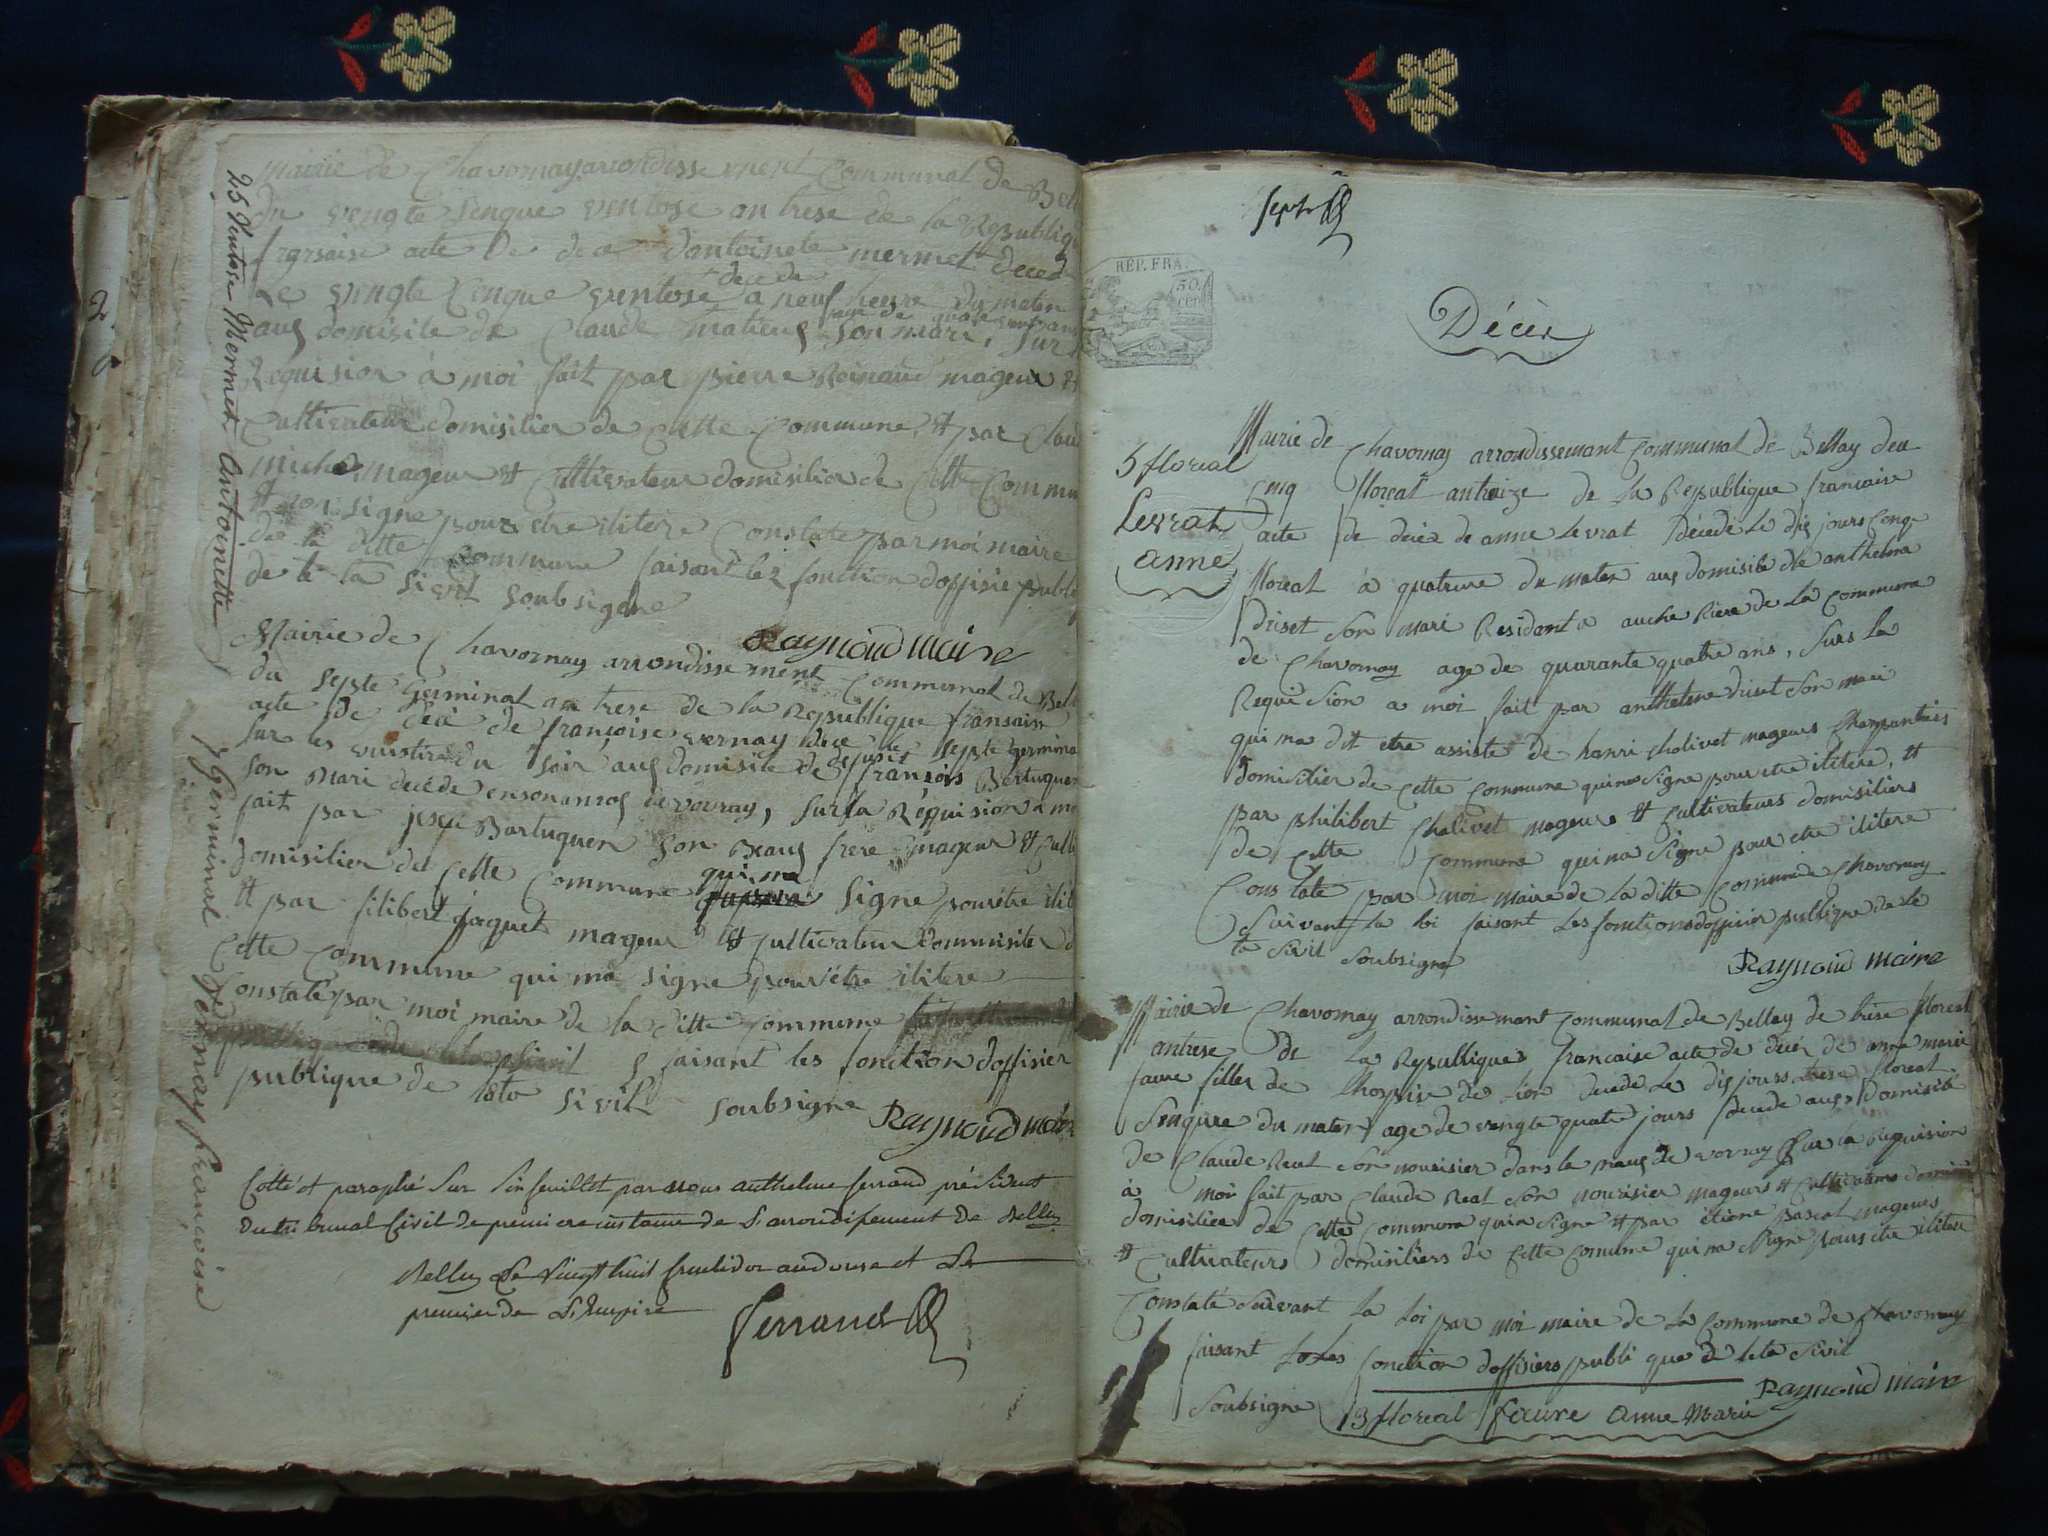 mairie de Chavornay arrondissement Communal de Bell
du vengte senque ventose an trese de la Republiq
fransaise acte De dece dantoinete mermet deced
decede
Le vingte Cinque ventose a neuf heure du maten
aus domisile de Claude matieus son mari, sur
Requision à moi fait par pierre Reinaud mageur et
Cultivateur domisilier de Cette Commune, et par Clau
michel mageur et Cultivateur domisilier de Cette Commu
signe pour etre ilitere Constate par moi maire
de la ditte Commune faisant les fonction doffisie publi
de le ta sivil soubsigne
Raynoud maire
25 Ventose Mermet Antoinette
Mairie de Chavornay arrondissement Communal de Bell
du septe Germinal an trese de la Republique fransaise
acte de décé de françoise vernay dece le septe germina
sur les du soir aus domisile de françois Bertuquen
son mari decede de vovray, sur la Réquision a mo
fait par Bartuquen son Beaus frere mageur et Culti
domisilier de Cette Commune qui na signe pour être ilit
et par filibert jaquet mageur et Cultivateur dommisilier d
Cette Commune qui na signe pour être ilitere
Constaté par moi maire de la ditte Commune
faisant les fonction doffisier
publique de leta sivil soubsigne
Raynoud maire
7 Germinal Vernay françoise
Cotté et paraphé sur six feuillet par nous anthelme ferrand président
du tribunal Civil de premiere instance de L'arrondissement de Belley
Belley Le vingt huit fructidor an douze et Le
premier de L'Empire
ferrand
sept
REP. FRA.
50
cen
Décès
5 floreal
Levrat
Anne
Mairie de Chavornay arrondissement Communal de Bellay deu
Cinq floreal an treize de la Republique francaise
acte de décès de anne levrat décédé le dis jours Cenq
floreal à quatreure du maten aus domisile de anthelme
driset son mari Residant a auche Riere de la Commune
de Chavornay age de quarante quatre ans, surs la
Requision a moi fait par anthelme driset son mari
qui ma dit etre assiste de hanri Cholivet mageurs
domisilier de Cette Commune qui na signe pour etre ilitere, et
par philibert Cholivet mageurs et Cultivateurs domisiliers
de Cette Commune qui na signe pour etre ilitere
Constate par moi maire de la ditte Commune de Chavornay
suivant la loi faisant les fonctions doffisier publique de le
ta sivil soubsigne
Raynoud maire
Mairie de Chavornay arrondissement Communal de Bellay de trese floreal
antrese De La Republique francaise acte de décès de anne marie
faure filles de Lhospise de lion décédé le dis jours trese floreal
senqure du maten age de vengte quatre jours décédé aus domisile
de Claude Reat son nourisier dans le de vovray sur la Requision
à moi fait par Claude Reat son nourisier mageurs et Cultivateurs
domisilier de Cette Commune qui na signe et par etiene pascal mageurs
et Cultivateurs domisiliers de Cette Comune qui na signe pours etre ilitere
Constaté suivant La Loi par moi maire de La Commune de Chavornay
faisant Les fonction doffisiers publi que de leta sivil
soubsigne
Raynoud maire
13 floreal feaure Anne Marie